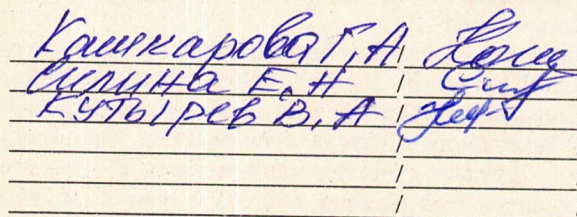 Кашкарова Г,А /
Силина Е,Н /
Кутырев В,А /
/
/
/